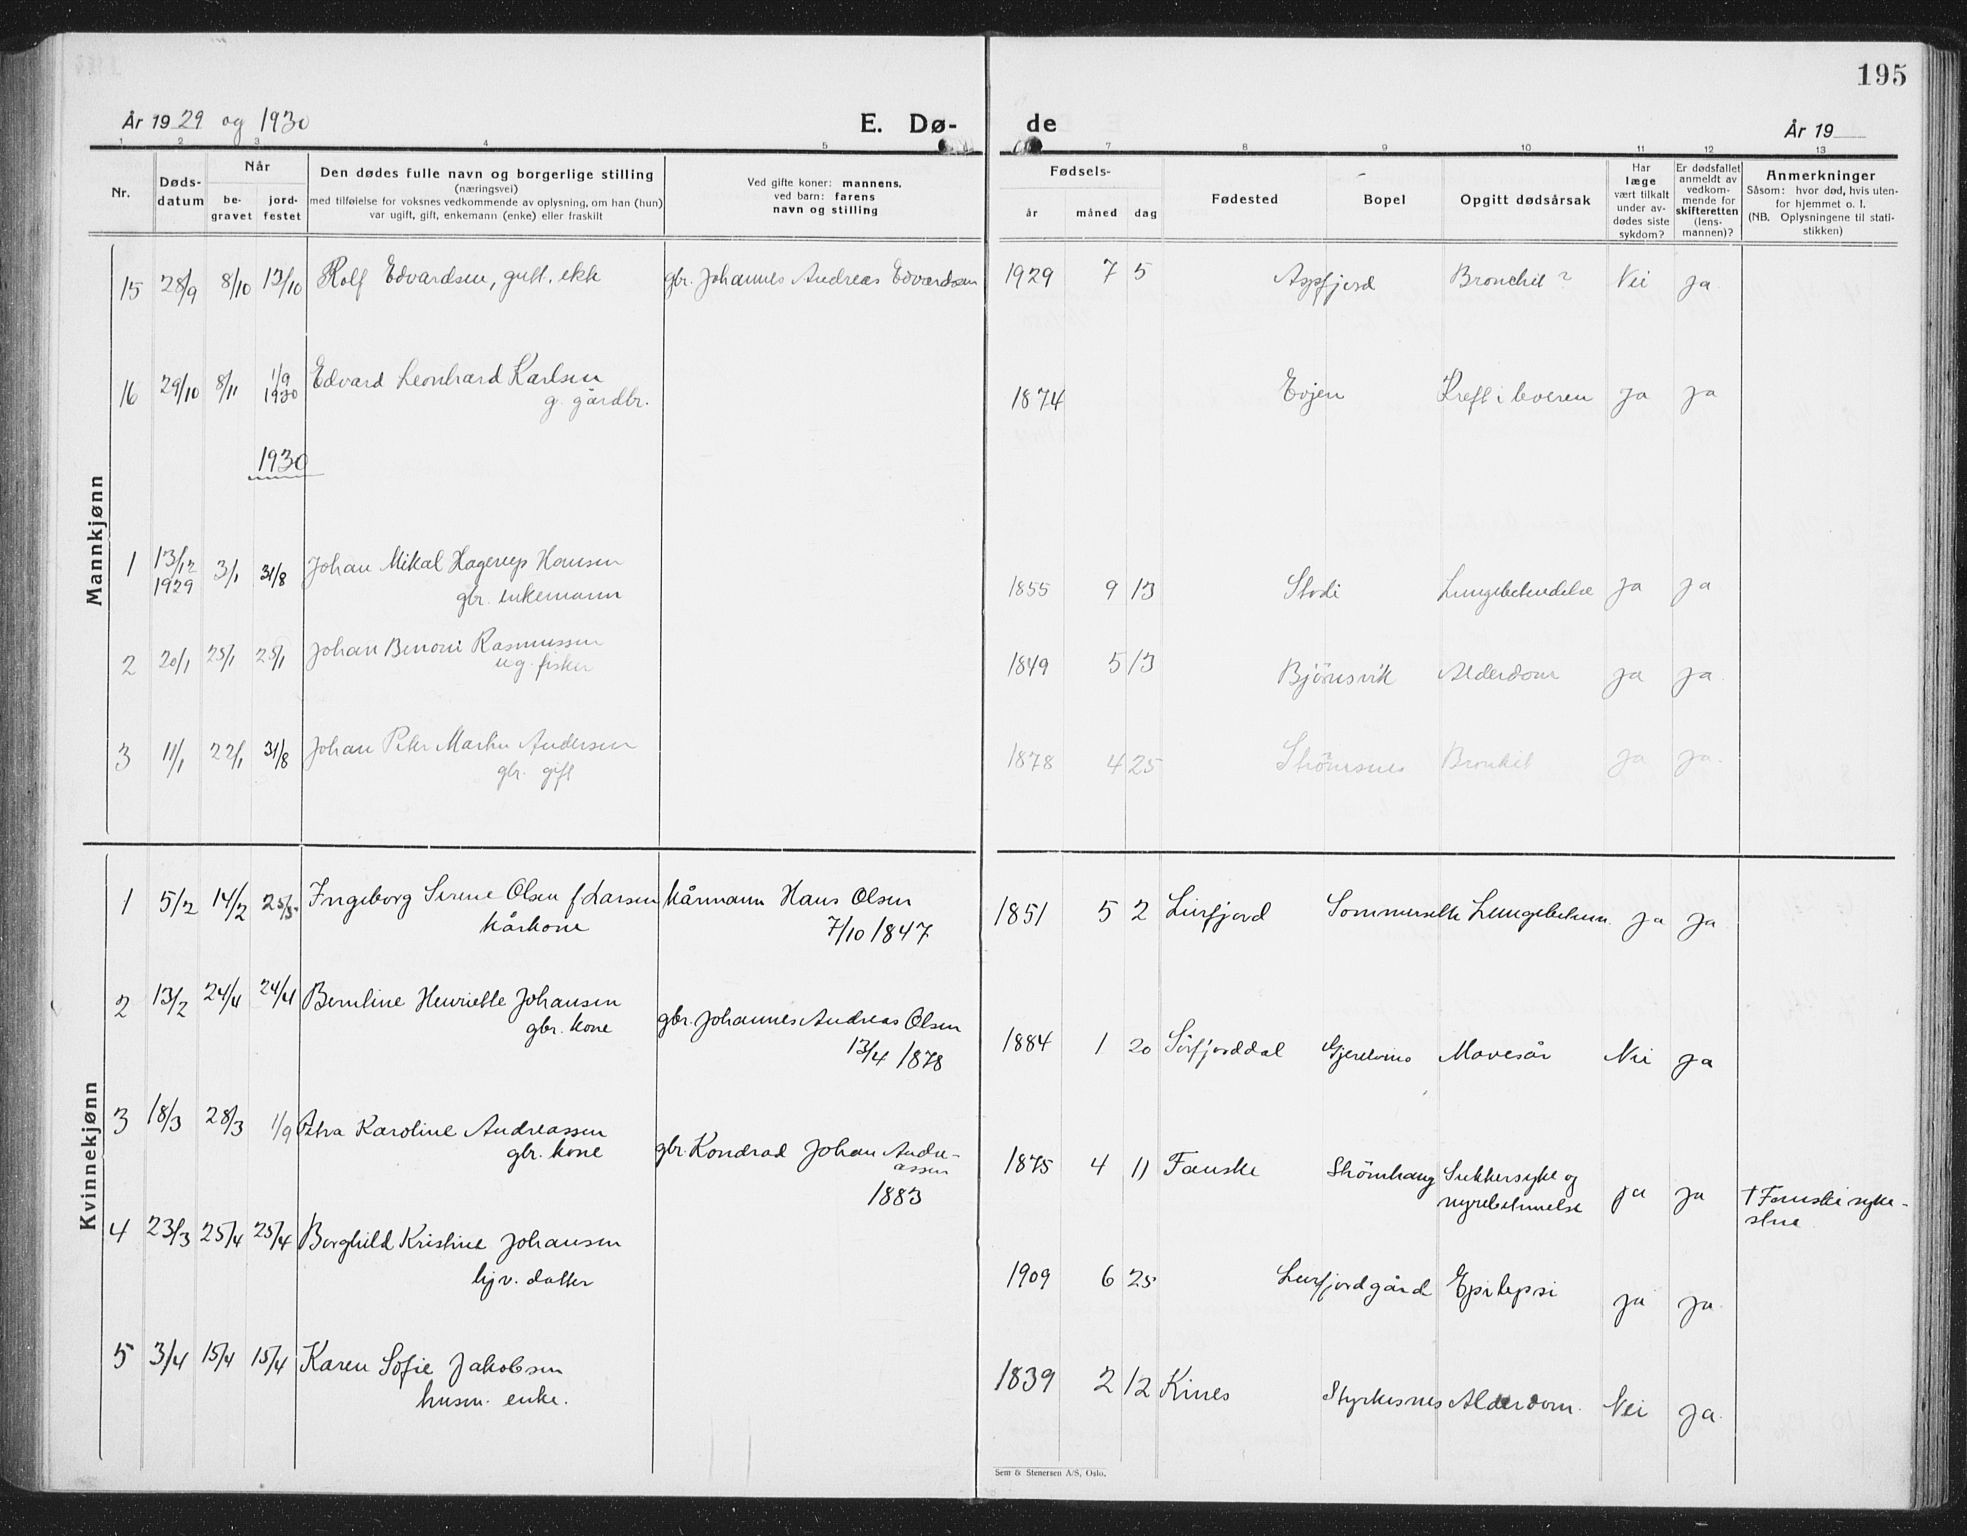 195
År 1929 og 1930
E. Dø-
de
År 19
1 2 3 4 5 7 8 9 10 11 12 13
Nr.
Døds-
datum
Når
be-
gravet
jord-
festet
Den dødes fulle navn og borgerlige stilling
(næringsvei)
med tilføielse for voksnes vedkommende av oplysning, om han (hun)
var ugift, gift, enkemann (enke) eller fraskilt
Ved gifte koner: mannens,
ved barn: farens
navn og stilling
Fødsels-
år måned dag
Fødested
Bopel
Opgitt dødsårsak
Har
læge
vært tilkalt
under av-
dødes siste
sykdom?
Er dødsfallet
anmeldt av
vedkom-
mende for
skifteretten
(lens-
mannen)?
Anmerkninger
Såsom: hvor død, hvis uten-
for hjemmet o. l.
(NB. Oplysningene til stati-
stikken)
Mannkjønn
15 28/9 8/10 13/10 Rolf Edvardsen, gutt, ekk gbr. Johannes Andreas Edvardsen 1929 7 5 Appfjord Bronchit? Nei ja
16 29/10 8/11 1/9 1930 Edvard Leonhard Karlsen 1874 Evjen Kreft i leveren ja ja
g. gårdbr.
1930
1 13/12 1929 3/1 31/8 Johan Mikal Hagerup Hansen 1855 9 13 Stodi Lungebetendelse ja ja
gbr. enkemann
2 20/1 25/1 25/1 Johan Benoni Rasmussen 1849 5 13 Bjørnsvik Alderdom ja ja
ug. fisker
3 11/1 22/1 31/8 Johan Peter Martin Andersen 1878 4 25 Strømsnes Bronkit ja ja
gbr. gift
Kvinnekjønn
1 5/2 14/2 25/5 Ingeborg Serine Olsen f Larsen kårmann Hans Olsen 1851 5 2 Leirfjord Sommersette Lungebeten. ja ja
kårkone 7/10 1847
2 13/2 24/4 24/4 Berntine Henriette Johansen gbr. Johannes Andreas Olsen 1884 1 20 Sørfjorddal Gjerelvmo Mavesår Nei ja
gbr. kone 13/4 1878
3 18/3 28/3 1/9 Petra Karoline Andreassen gbr. Kondrad Johan Andre-
assen 1875 4 11 Fauske Strømhaug Sukkersyke og
nyrebetennelse ja ja † Fauske syke-
stue
gbr. kone 1883
4 23/3 25/4 25/4 Borghild Kristine Johansen 1909 6 25 Leirfjordgård Epilepsi ja ja
hjv. datter
5 3/4 15/4 15/4 Karen Sofie Jakobsen 1839 2 12 Kines Styrkesnes Alderdom. Nei ja
husm. enke.
Sem & Stenersen A/S, Oslo.